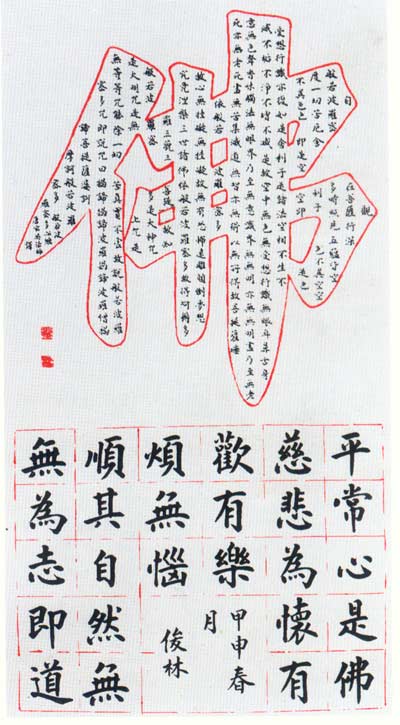 觀
自
在菩薩行深
般若波羅密
多時照見五蘊皆空
度一切苦厄舍
利子
色不異空空
不異色色
即是空
空即
是色
受想行識亦復如是舍利子是諸法空相不生不
滅不垢不淨不增不減是故空中無色無受想行識無眼耳鼻舌身
意無色聲香味觸法無眼界乃至無意識界無無明亦無無明盡乃至無老
死亦無老死盡無苦集滅道無智亦無得以無所得故菩提薩埵
依般若波
羅密多
故心無罣礙無罣礙故無有恐怖遠離顛倒夢想
究竟涅槃三世諸佛依般若波羅密多故得阿耨多
羅三藐三
菩提故知
般若波
羅密
多是大神咒
是大明咒是無
上咒是
無等等咒能除一切
苦真實不虛故說般若波羅
密多咒即說咒曰揭諦揭諦波羅揭諦波羅僧揭
諦菩提薩婆訶
摩訶般若波羅
平常心是佛
慈悲為懷有
歡有樂
甲申春月
煩無惱
俊林
順其自然無
無為志即道